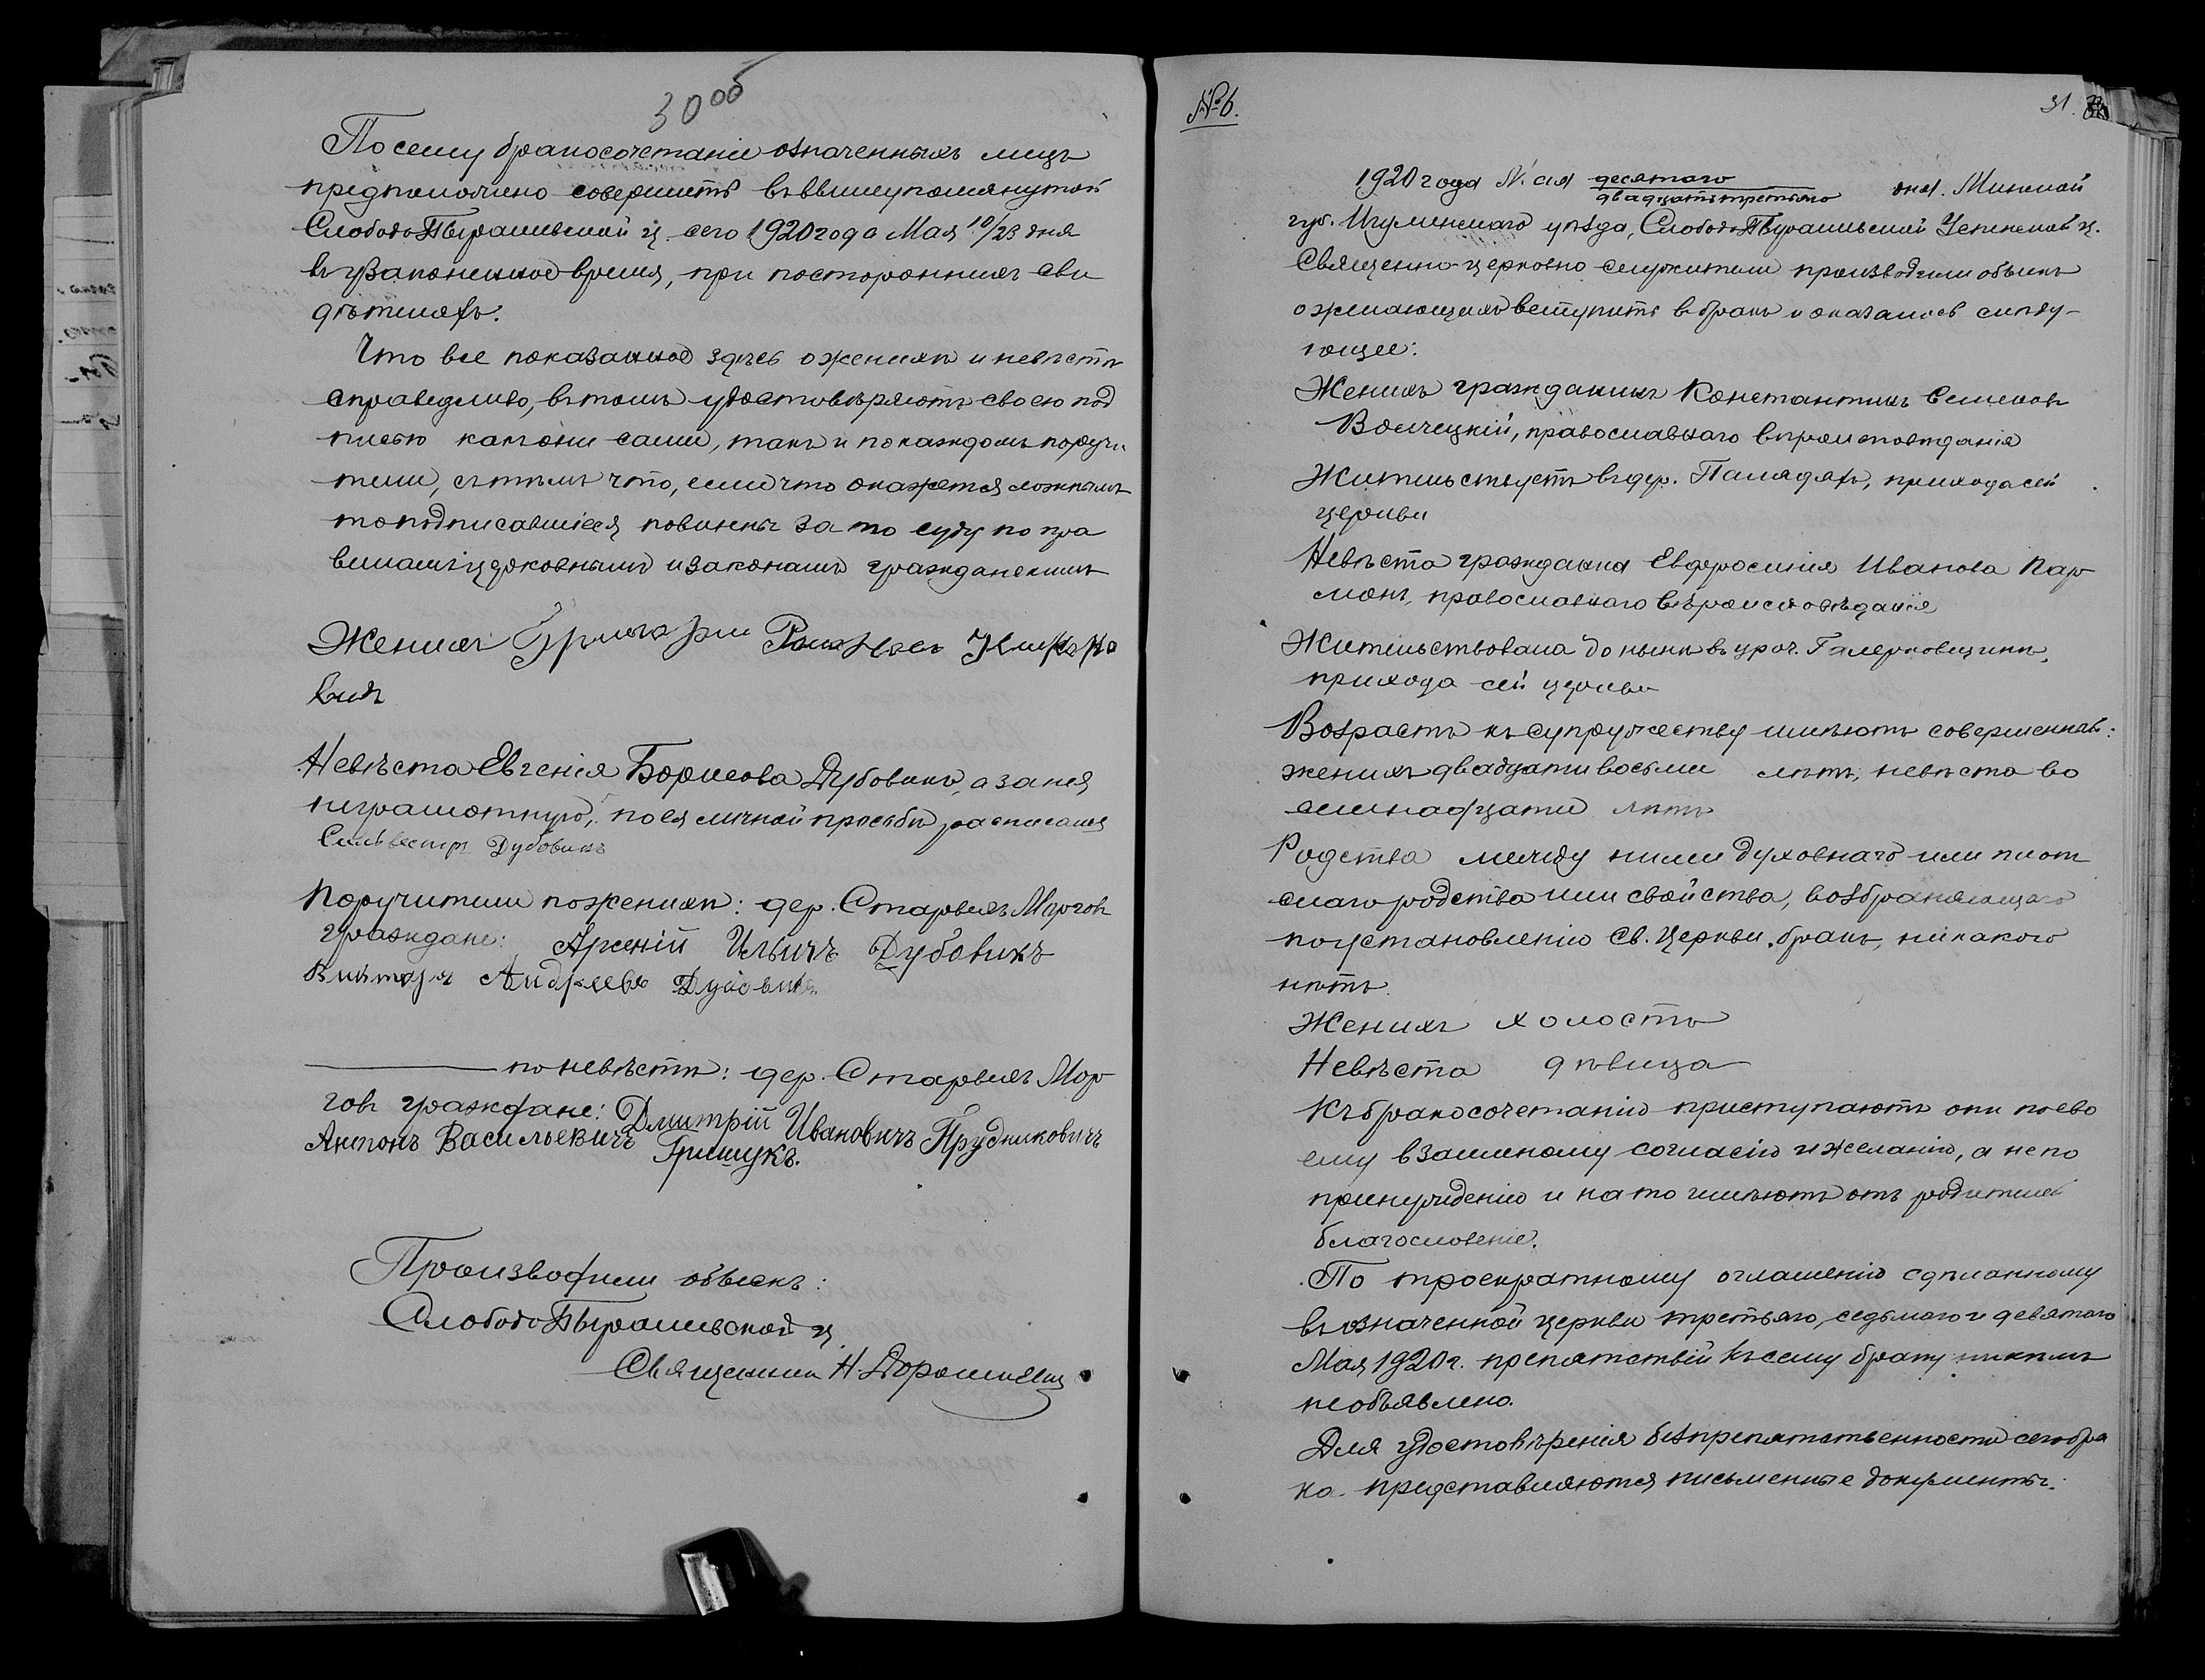 30 об
Посему бракосочетаніе означенныхъ лицъ
предположено совершить въ вышеупомянутой
Слободо-Пырашевской ц. сего 1920 года Мая 10/23 дня
въ узаконенное время, при постороннихъ сви
дѣтеляхъ.
Что все показанное здѣсь о женихѣ и невѣстѣ
справедливо, въ томъ удостовѣряютъ своею под
писью какъ они сами, такъ и по каждомъ поручи
тели, съ тѣмъ что, если что окажется ложнымъ
то подписавшіеся повинны за то суду по пра
виламъ церковнымъ и законамъ гражданскимъ
Женихъ
Невѣста Евгенія Борисова Дубовикъ, а за нея
неграмотную, по ея личной просьбѣ расписался
Сильвестръ Дубовикъ
Поручители по женихѣ: дер. СтарыхъМорговъ
граждане: Арсеній Ильичъ Дубовикъ
Викторъ Андреевъ Дубовикъ
по невѣстѣ: дер. Старыхъ Мор
говъ граждане: Дмитрій Ивановичъ Прудниковичъ
Антонъ Васильевичъ Грищукъ.
Производили обыскъ:
Слободо-Пырашевской ц.
Священникъ Н. Дорошевичъ
№ 6.
31.
1920 года Мая десятаго
двадцать третьяго дня. Минской
губ. Игуменскаго уѣзда, Слободо-Пырашевской Успенской ц.
Священно-церковно служители производили обыскъ
о желающихъ вступить въ бракъ и оказалось слѣду-
ющее:
Женихъ гражданинъ Константинъ Семеновъ
Волчецкій, православнаго вѣроисповѣданія
Жительствуетъ въ дер. Палядяхъ, прихода сей
церкви
Невѣста гражданка Евфросинія Иванова Кар
монъ, православнаго вѣроисповѣданія
Жительствовала до нынѣ въ уроч. Галерковщинѣ,
прихода сей церкви
Возрастъ къ супружеству имѣютъ совершенный:
женихъ двадцати восьми лѣтъ, невѣста во
семнадцати лѣтъ
Родства между ними духовнаго или плот
скаго родства или свойства, возбраняющаго
по установленію Св. Церкви бракъ, никакого
нѣтъ.
Женихъ холостъ
Невѣста дѣвица
Къ бракосочетанію приступаютъ они по сво
ему взаимному согласію и желанію, а не по
принужденію и на то имѣютъ отъ родителей
благословеніе.
По троекратному оглашенію сдѣланному
въ означенной церкви третьяго, седьмаго и девятаго
Мая 1920 г. препятствій къ сему браку никѣмъ
не объявлено.
Для удостовѣренія безпрепятственности сего бра
ка представляются письменные документы: